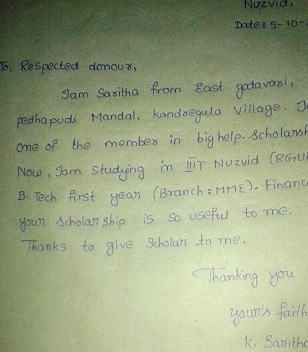 Nuzvid,
Date: 5-10-
To, Respected donour,
Iam Saritha from East godavari,
pedhapudi Mandal, kandregula village. I
one of the member in big help. Scholarsh
Now, Iam Studying in IIIT Nuzvid (RGU
B. Tech first year (Branch: MME). Financ
your Scholar ship is so useful to me.
Thanks to give Scholar to me.
Thanking you
your's faith
K. Saritha